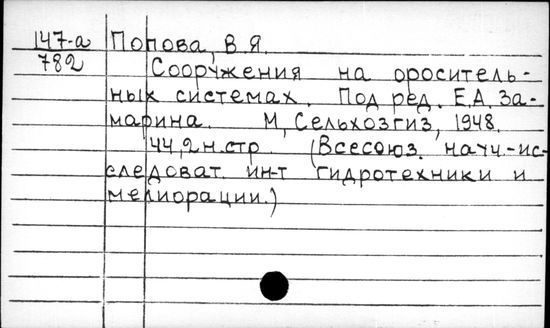 147-а Попова, В.Я.
782 Сооружения на ороситель-
ных системах. Под ред. Е.А. За-
марина. М, Сельхозгиз, 1948.
44,2 н.стр. (Всесоюз. научн.-ис-
следоват. ин-т гидротехники и
мелиорации.)